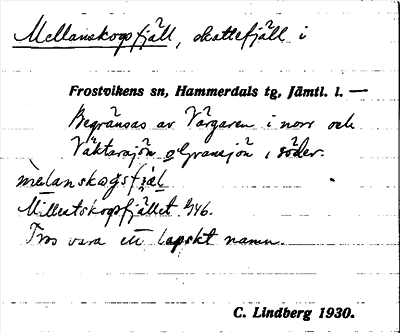 Mellanskogsfjäll, skattefjäll i
Frostvikens sn, Hammerdals tg, Jämtl. l. —
Begränsas av Värgaren i norr och
Väktarsjön o Gransjön i söder.
mèlanskogsfjäl
Mellestskogsfjället G46.
Tros vara ett lapskt namn.
C. Lindberg 1930.